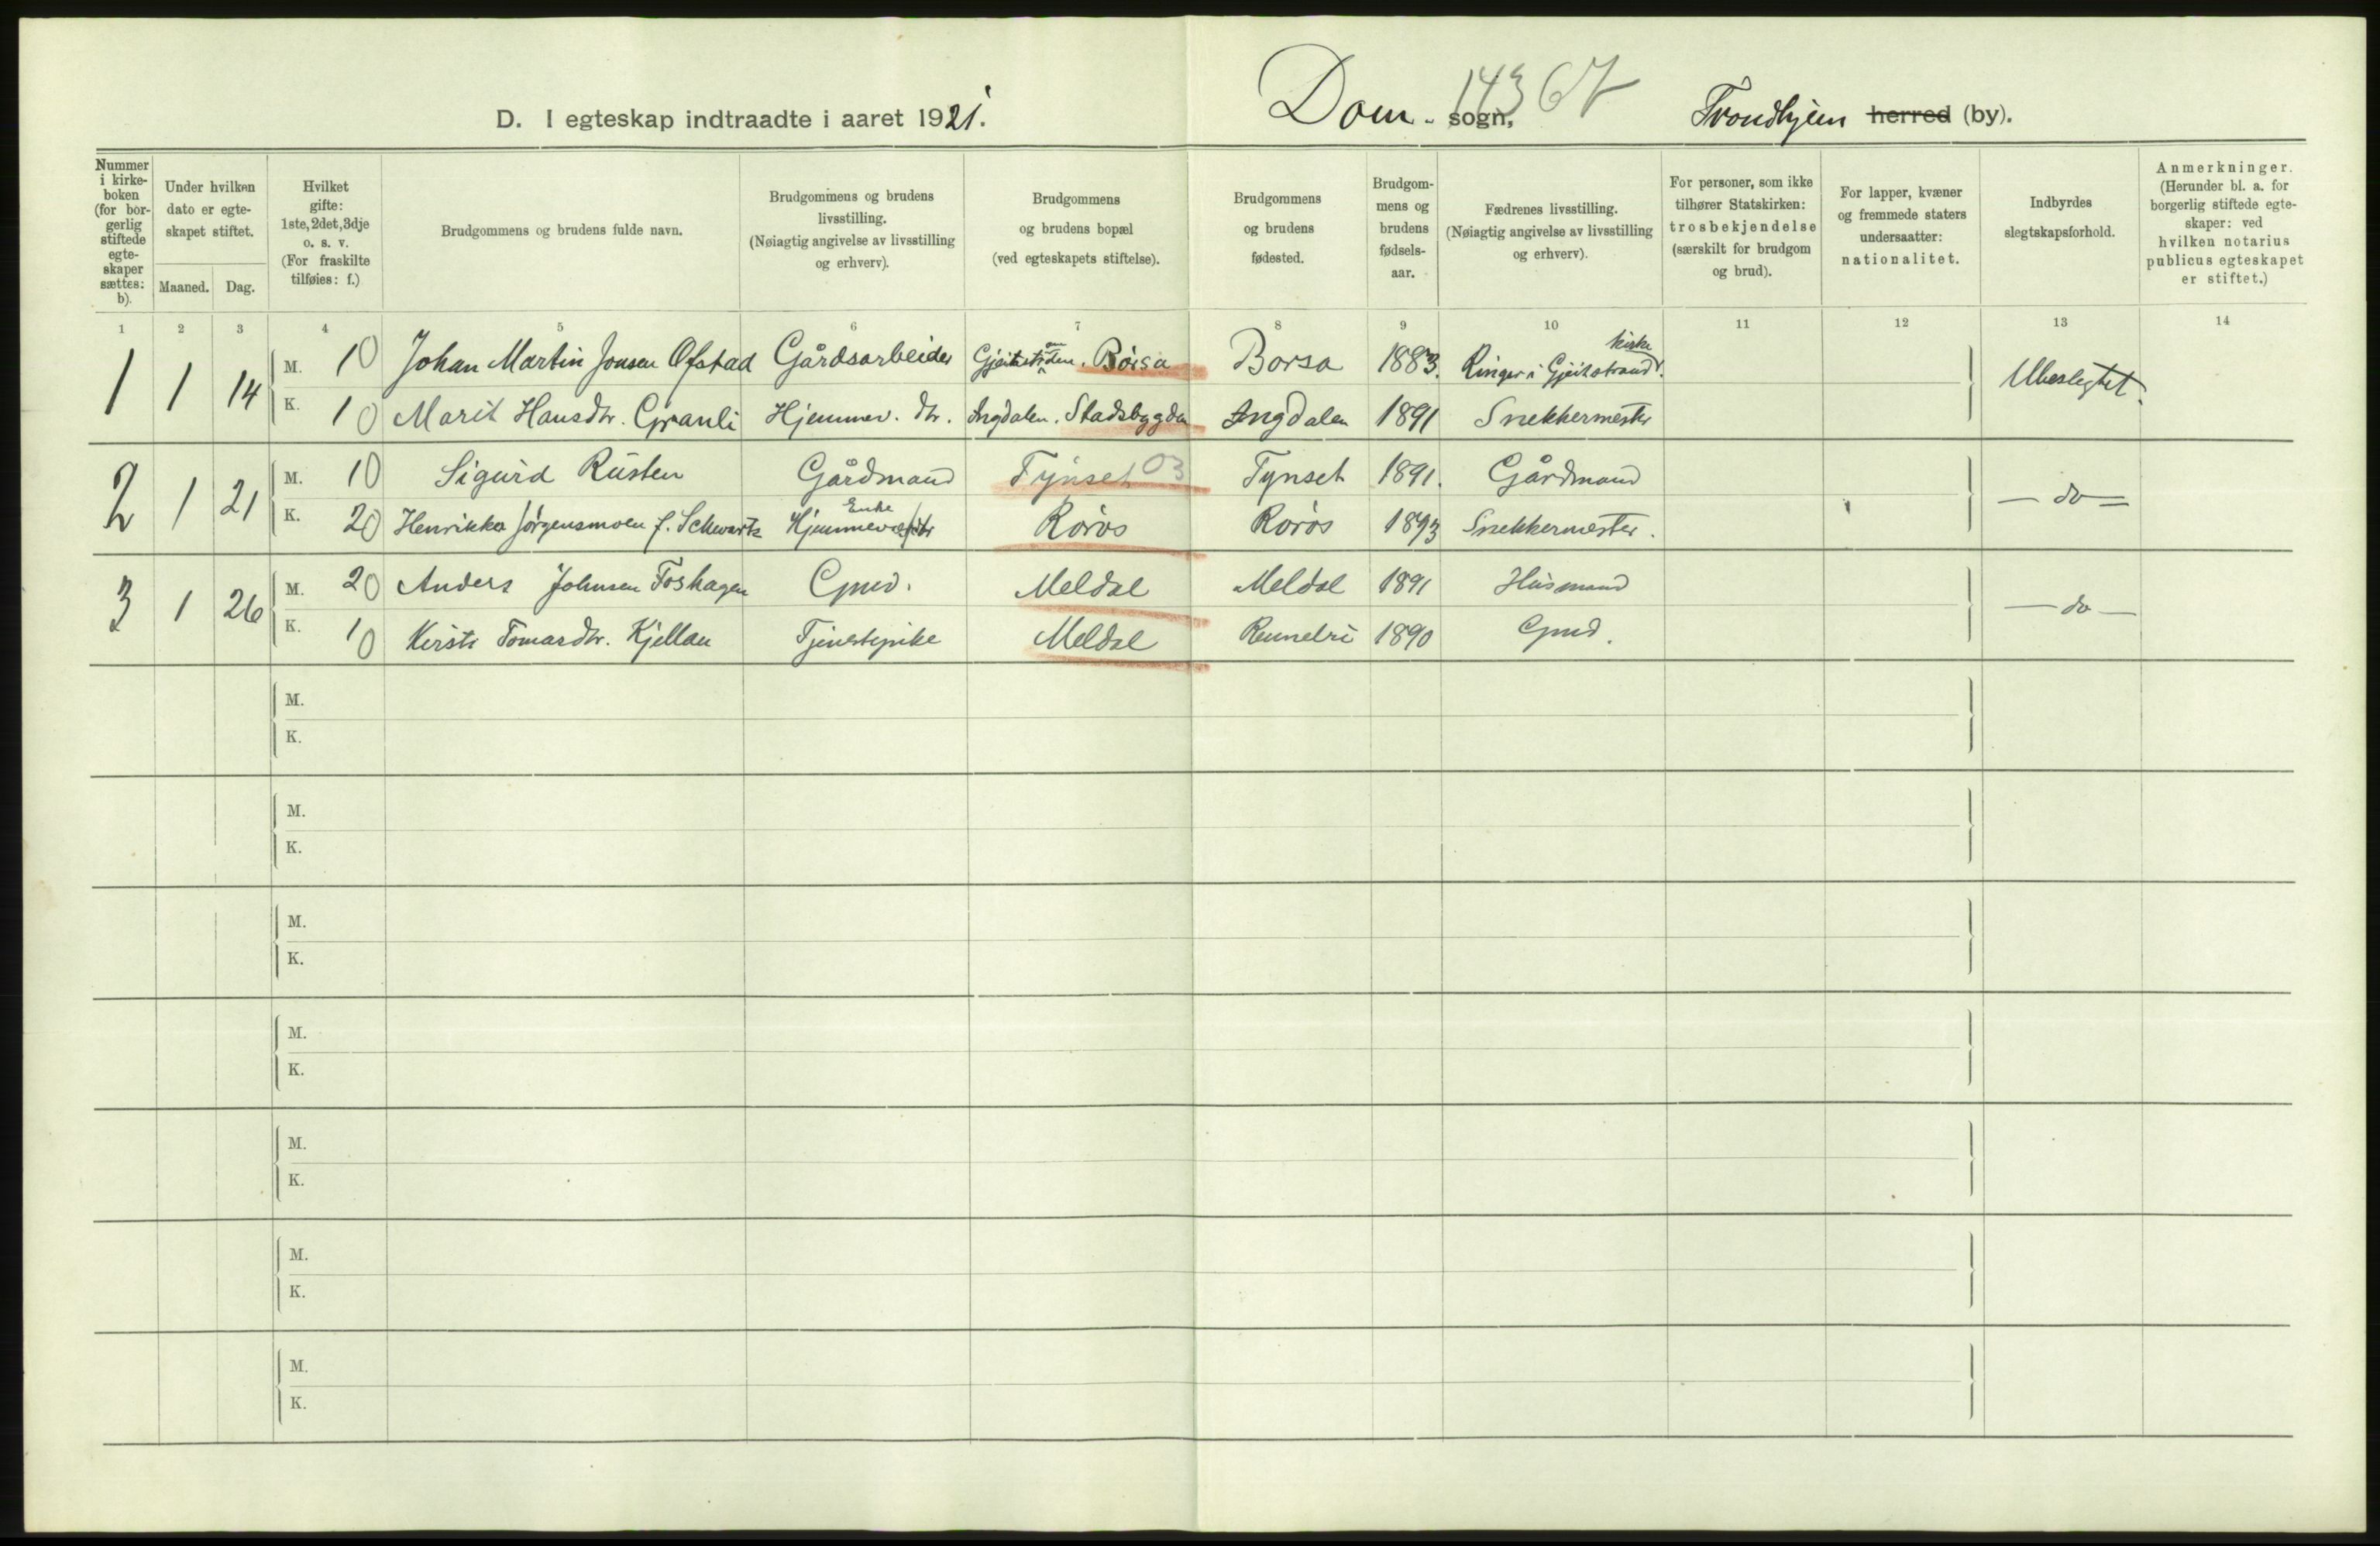 D. I egteskap indtraadte i aaret 1921.
Dom- sogn, 143 67 Trondhjem herred (by).
Nummer i kirke-boken (for bor-gerlig stiftede egte-skaper sættes: b).
Under hvilken dato er egte-skapet stiftet.
Maaned. Dag.
Hvilket gifte: 1ste, 2det, 3dje o. s. v. (For fraskilte tilføies: f.)
Brudgommens og brudens fulde navn.
Brudgommens og brudens livsstilling. (Nøiagtig angivelse av livsstilling og erhverv).
Brudgommens og brudens bopæl (ved egteskapets stiftelse).
Brudgommens og brudens fødested.
Brudgom-mens og brudens fødsels-aar.
Fædrenes livsstilling. (Nøiagtig angivelse av livsstilling og erhverv).
For personer, som ikke tilhører Statskirken: trosbekjendelse (særskilt for brudgom og brud).
For lapper, kvæner og fremmede staters undersaatter: nationalitet.
Indbyrdes slegtskapsforhold.
Anmerkninger. (Herunder bl. a. for borgerlig stiftede egte-skaper: ved hvilken notarius publicus egteskapet er stiftet.)
1 2 3 4 5 6 7 8 9 10 11 12 13 14
1 1 14 M. 10 Johan Martin Jonsen Øfstad Gårdsarbeider Børsa Børsa 1883. Ringer i Gjeitstrand kirke Ubeslegtet.
K. 10 Marit Hansdtr. Granli Hjemmev. dtr. Ingdalen. Stadsbygden Ingdalen 1891 Snekkermester
2 1 21 M. 10 Sigurd Rusten Gårdmand Tynset 03 Tynset 1891. Gårdmand — do —
K. 20 Henrikka Jørgensmoen f. Schwartz Enke Røros Røros 1893 Snekkermester.
3 1 26 M. 20 Anders Johnsen Foshagen Gmd. Meldal Meldal 1891 Husmand — do —
K. 10 Kirsti Tomasdtr. Kjellan Tjenestepike Meldal Rennebu 1890 Gmd.
M.
K.
M.
K.
M.
K.
M.
K.
M.
K.
M.
K.
M.
K.